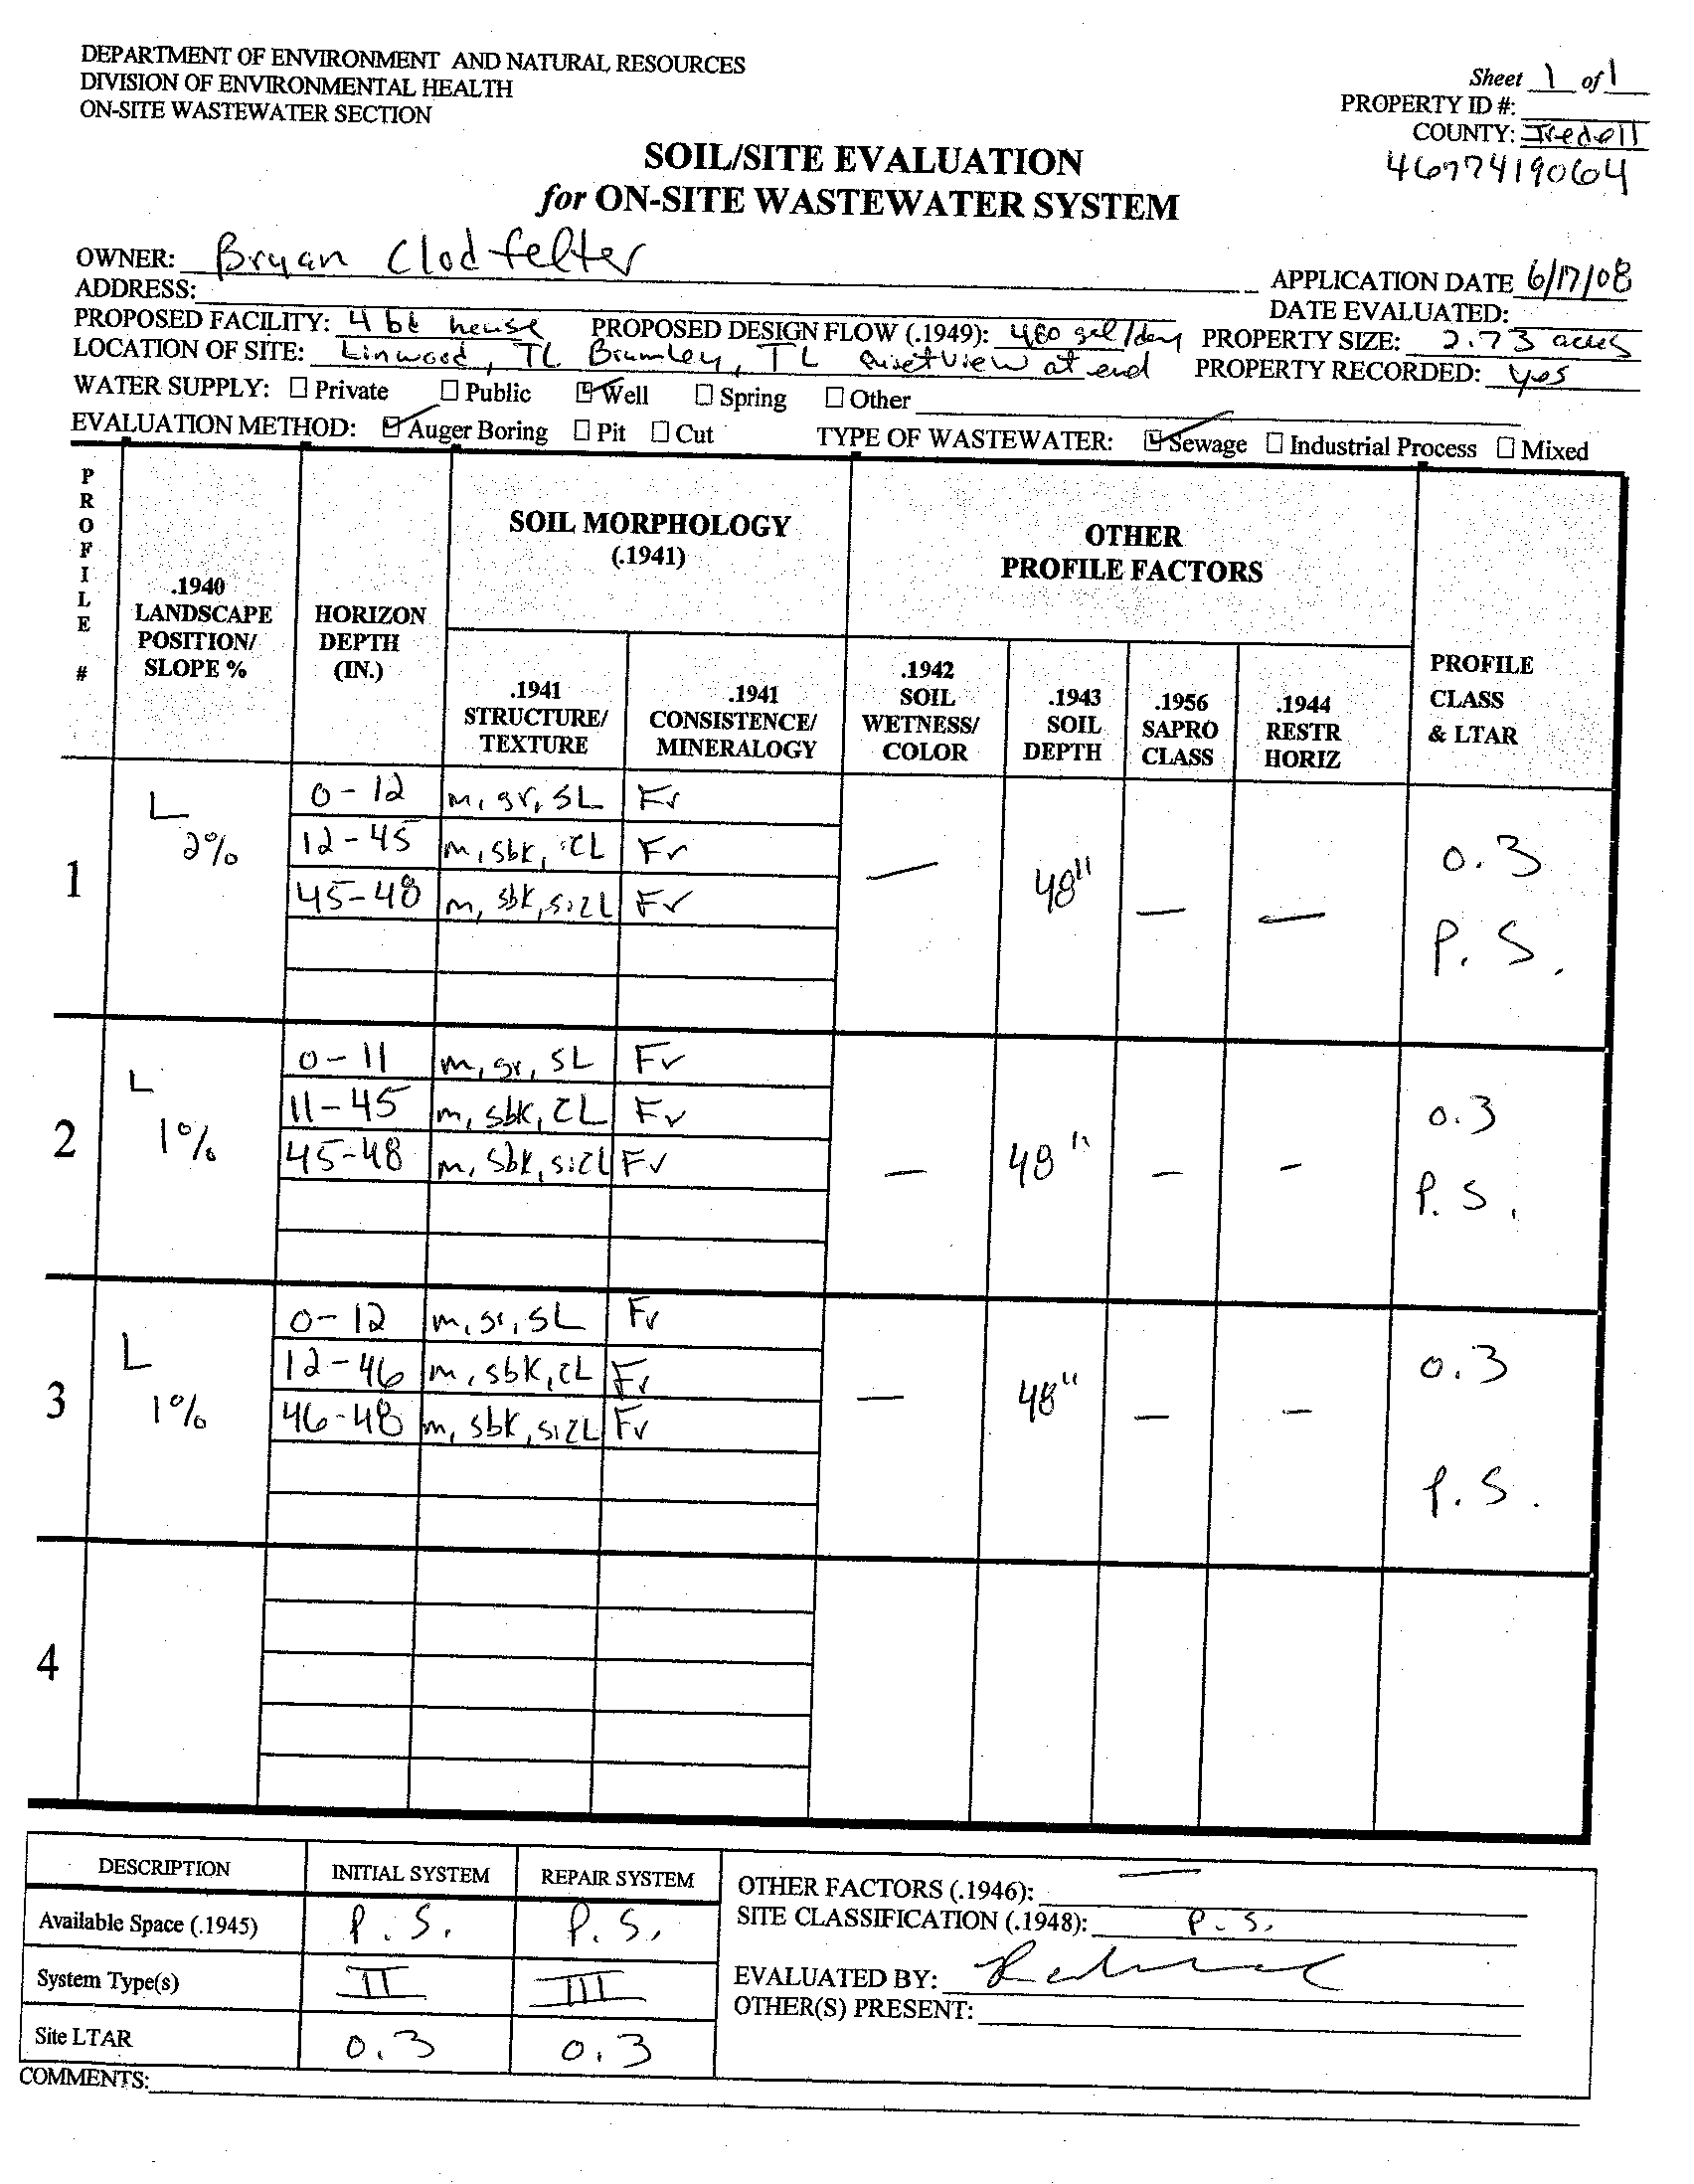 DEPARTMENT OF ENVIRONMENT AND NATURAL RESOURCES
DIVISION OF ENVIRONMENTAL HEALTH
ON-SITE WASTEWATER SECTION
Sheet 1 of 1
PROPERTY ID #:
COUNTY: Iredell
46774190604
SOIL/SITE EVALUATION
for ON-SITE WASTEWATER SYSTEM
OWNER: Bryan Clodfelter
ADDRESS:
APPLICATION DATE 6/17/08
DATE EVALUATED:
PROPOSED FACILITY: 4 bd house PROPOSED DESIGN FLOW (.1949): 480 gal/day PROPERTY SIZE: 2.73 acres
LOCATION OF SITE: Linwood, TL Brumley, TL Quietview at end PROPERTY RECORDED: yes
WATER SUPPLY: ☐ Private ☐ Public ☑ Well ☐ Spring ☐ Other
EVALUATION METHOD: ☑ Auger Boring ☐ Pit ☐ Cut TYPE OF WASTEWATER: ☑ Sewage ☐ Industrial Process ☐ Mixed
PROFILE #
.1940 LANDSCAPE POSITION/ SLOPE %
HORIZON DEPTH (IN.)
SOIL MORPHOLOGY (.1941)
OTHER PROFILE FACTORS
.1941 STRUCTURE/ TEXTURE
.1941 CONSISTENCE/ MINERALOGY
.1942 SOIL WETNESS/ COLOR
.1943 SOIL DEPTH
.1956 SAPRO CLASS
.1944 RESTR HORIZ
PROFILE CLASS & LTAR
1 L 2%
0-12 m, gr, SL Fr
12-45 m, sbk, CL Fr
45-48 m, sbk, sicl Fr
— 48" — — 0.3 P.S.
2 L 1%
0-11 m, gr, SL Fr
11-45 m, sbk, CL Fr
45-48 m, sbk, sicl Fr
— 48" — — 0.3 P.S.
3 L 1%
0-12 m, gr, SL Fr
12-46 m, sbk, CL Fr
46-48 m, sbk, sicL Fr
— 48" — — 0.3 P.S.
4
DESCRIPTION INITIAL SYSTEM REPAIR SYSTEM
Available Space (.1945) P.S. P.S.
System Type(s) II III
Site LTAR 0.3 0.3
OTHER FACTORS (.1946): —
SITE CLASSIFICATION (.1948): P.S.
EVALUATED BY:
OTHER(S) PRESENT:
COMMENTS: